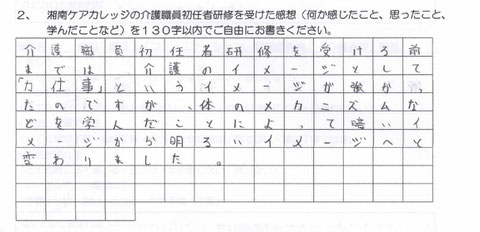 2、 湘南ケアカレッジの介護職員初任者研修を受けた感想（何か感じたこと、思ったこと、
学んだことなど）を１３０字以内でご自由にお書きください。
介護職員初任者研修を受ける前
までは、介護のイメージとして
「力仕事」というイメージが強かっ
たのですが、体のメカニズムな
どを学んだことによって暗いイ
メージから明るいイメージへと
変わりました。